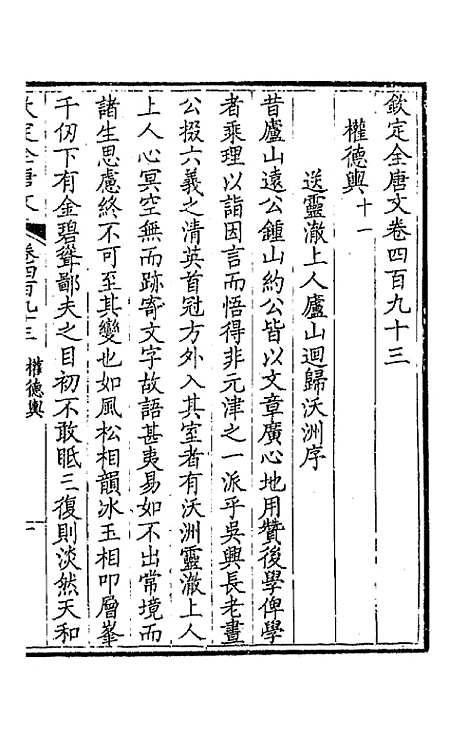 欽定全唐文卷四百九十三
權德輿十一
送靈澈上人廬山迴歸沃洲序
昔廬山遠公鍾山約公皆以文章廣心地用贊後學俾學
者乘理以詣因言而悟得非元津之一派乎吳興長老晝
公掇六義之清英首冠方外入其室者有沃洲靈澈上人
上人心冥空無而跡寄文字故語甚夷易如不出常境而
諸生思慮終不可至其變也如風松相韻冰玉相叩層峯
千仞下有金碧聳鄙夫之目初不敢眡三復則淡然天和
欽定全唐文
卷四百九十三
權德輿
一